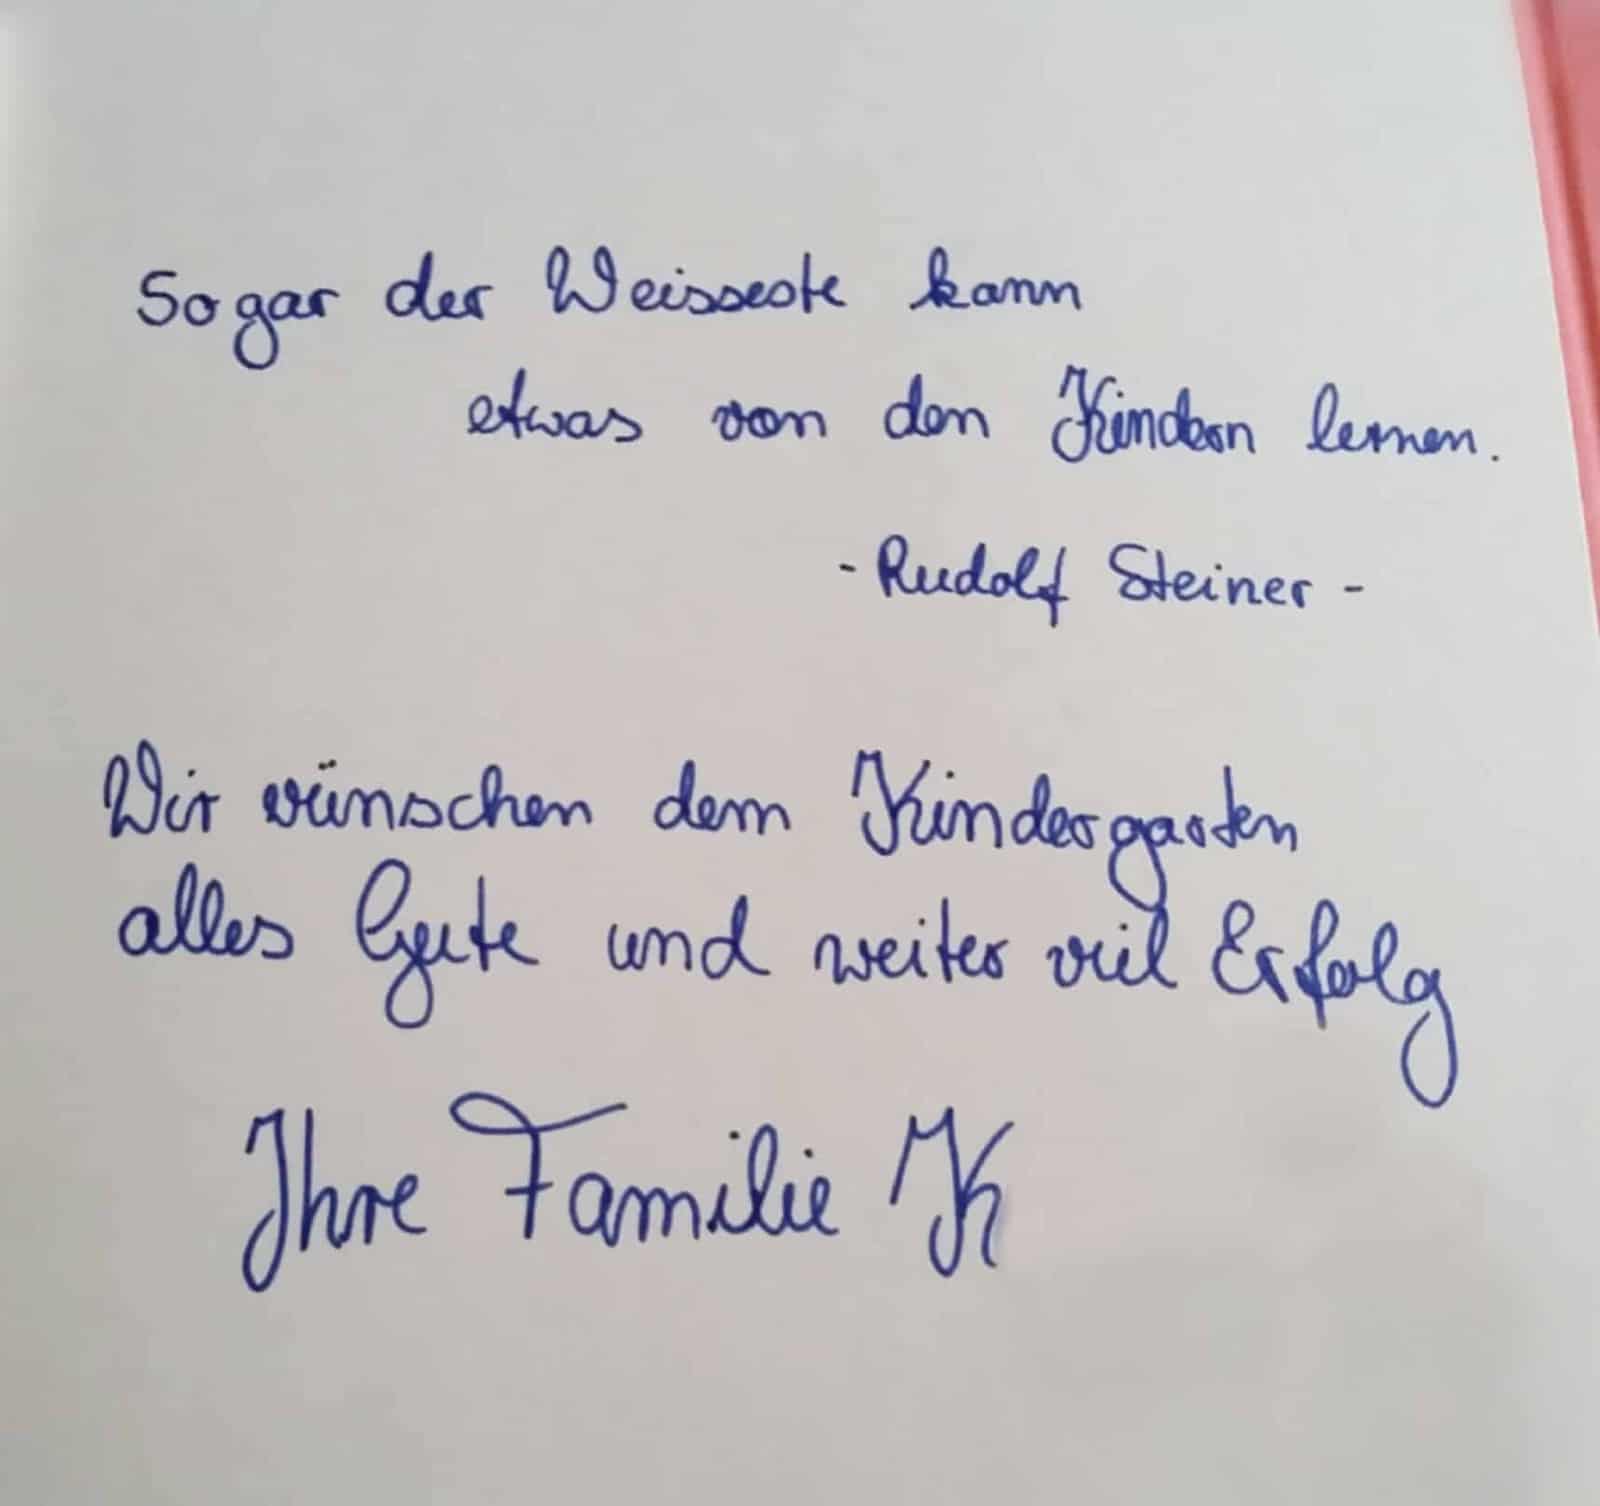 Sogar der Weisseste kann
etwas von den Kindern lernen.
- Rudolf Steiner -
Wir wünschen dem Kindergarten
alles Gute und weiter viel Erfolg
Ihre Familie K